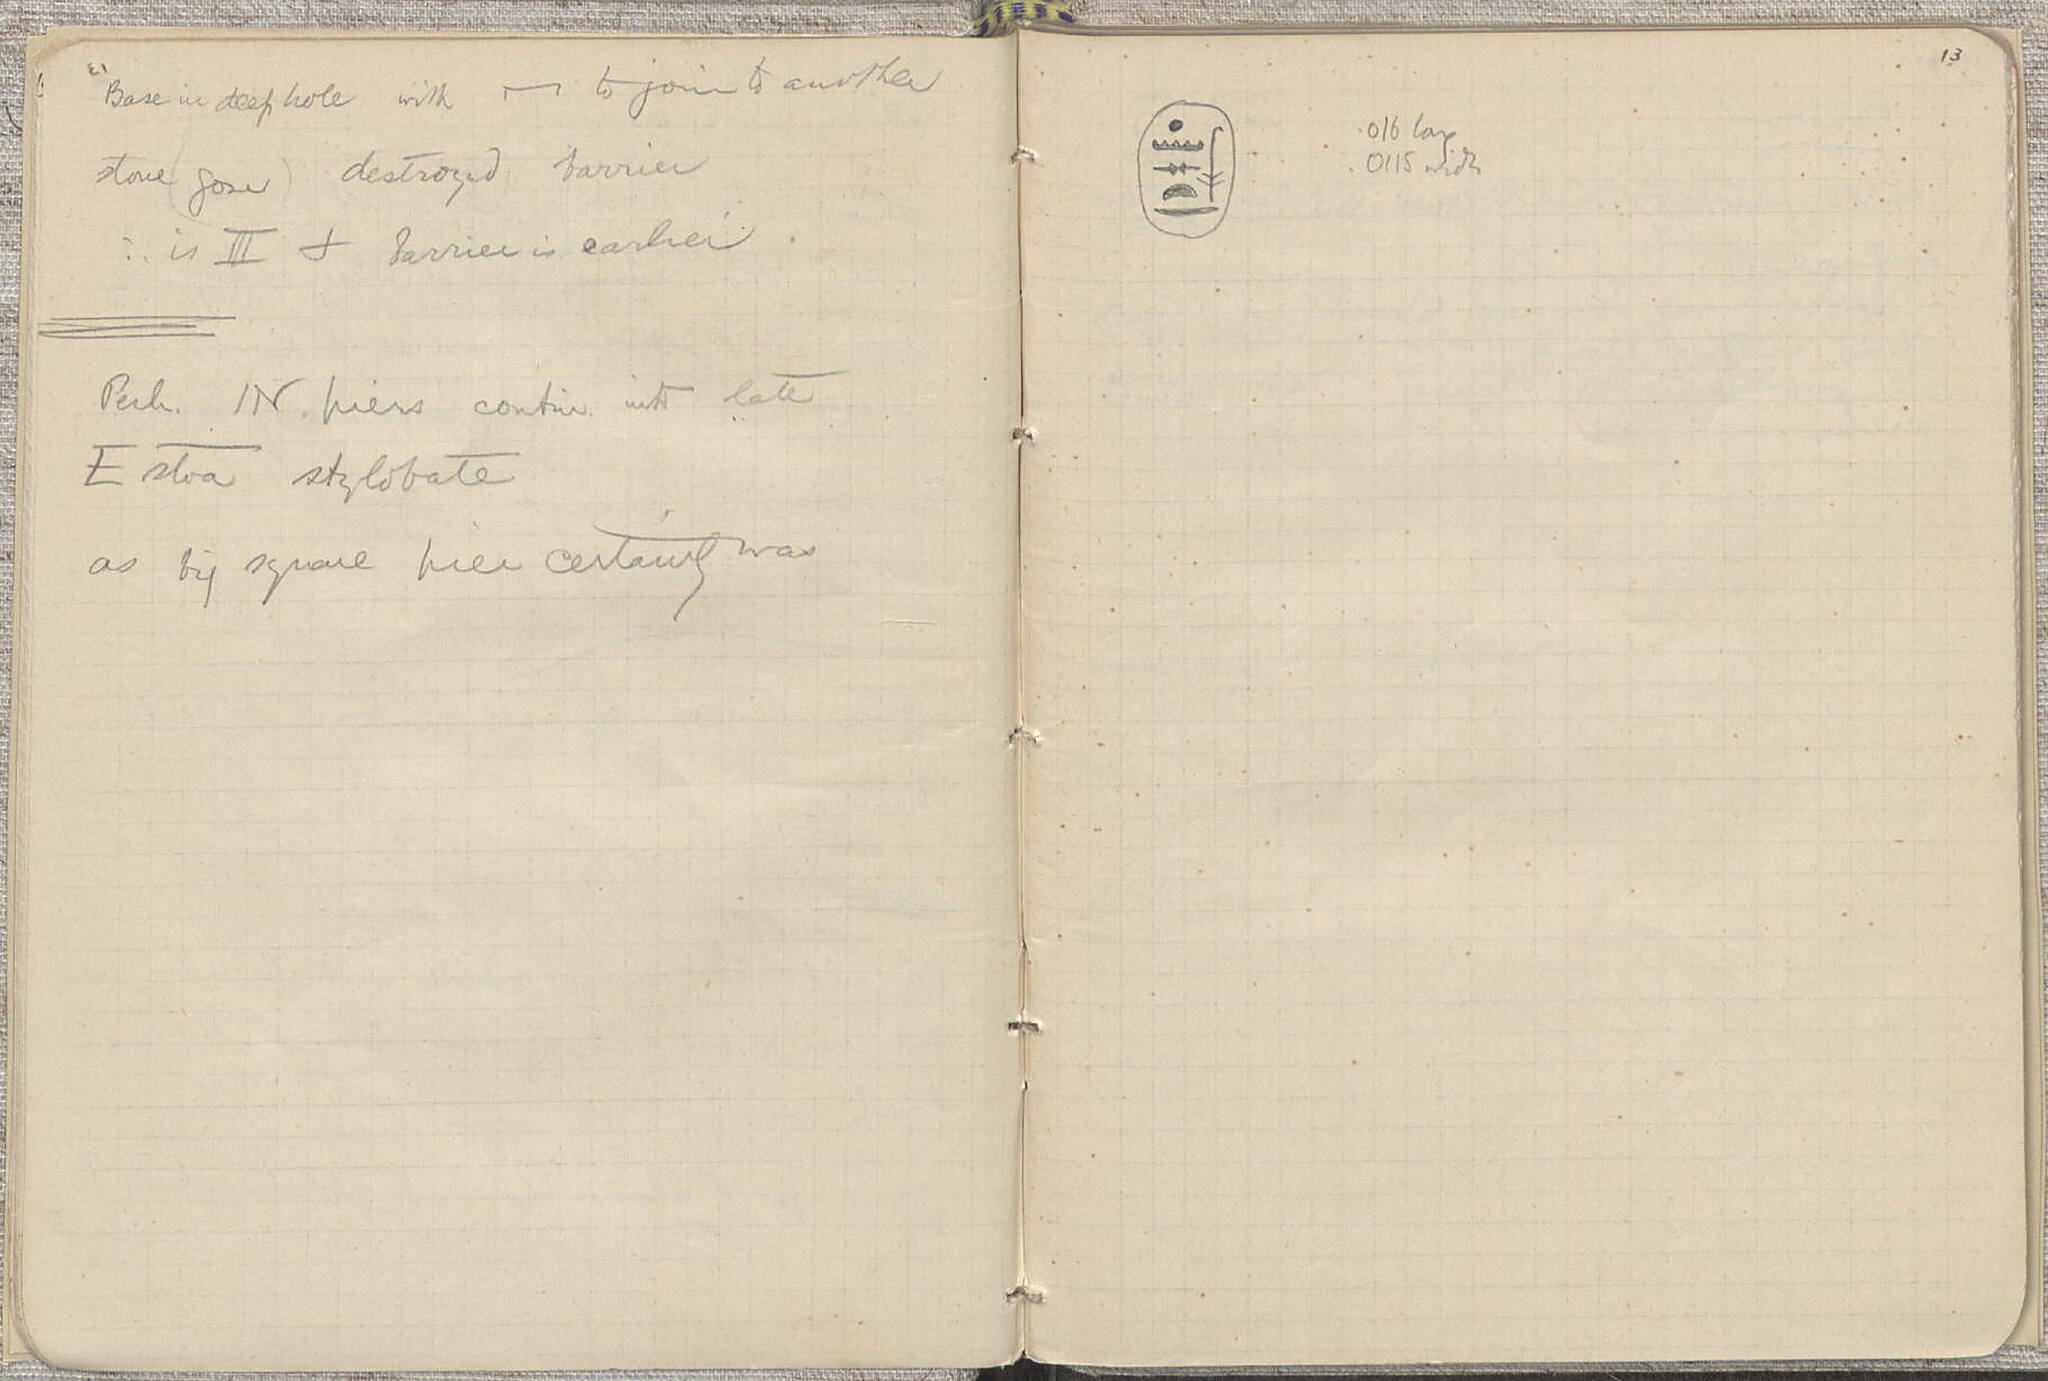 Base in deep hole with ⊓ to join to another
stone (gone) destroyed barrier
∴ is III & barrier is earlier.
Perh. IN. piers contin. into late
E stoa stylobate
as big square pier certainly was
13
.016 long
.0115 width